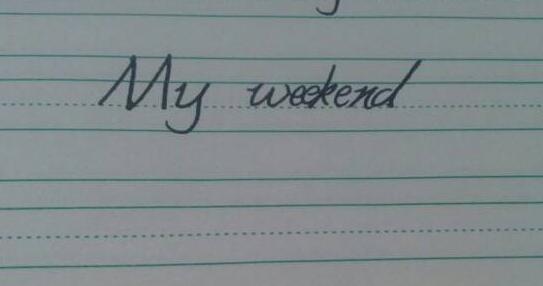 My weekend